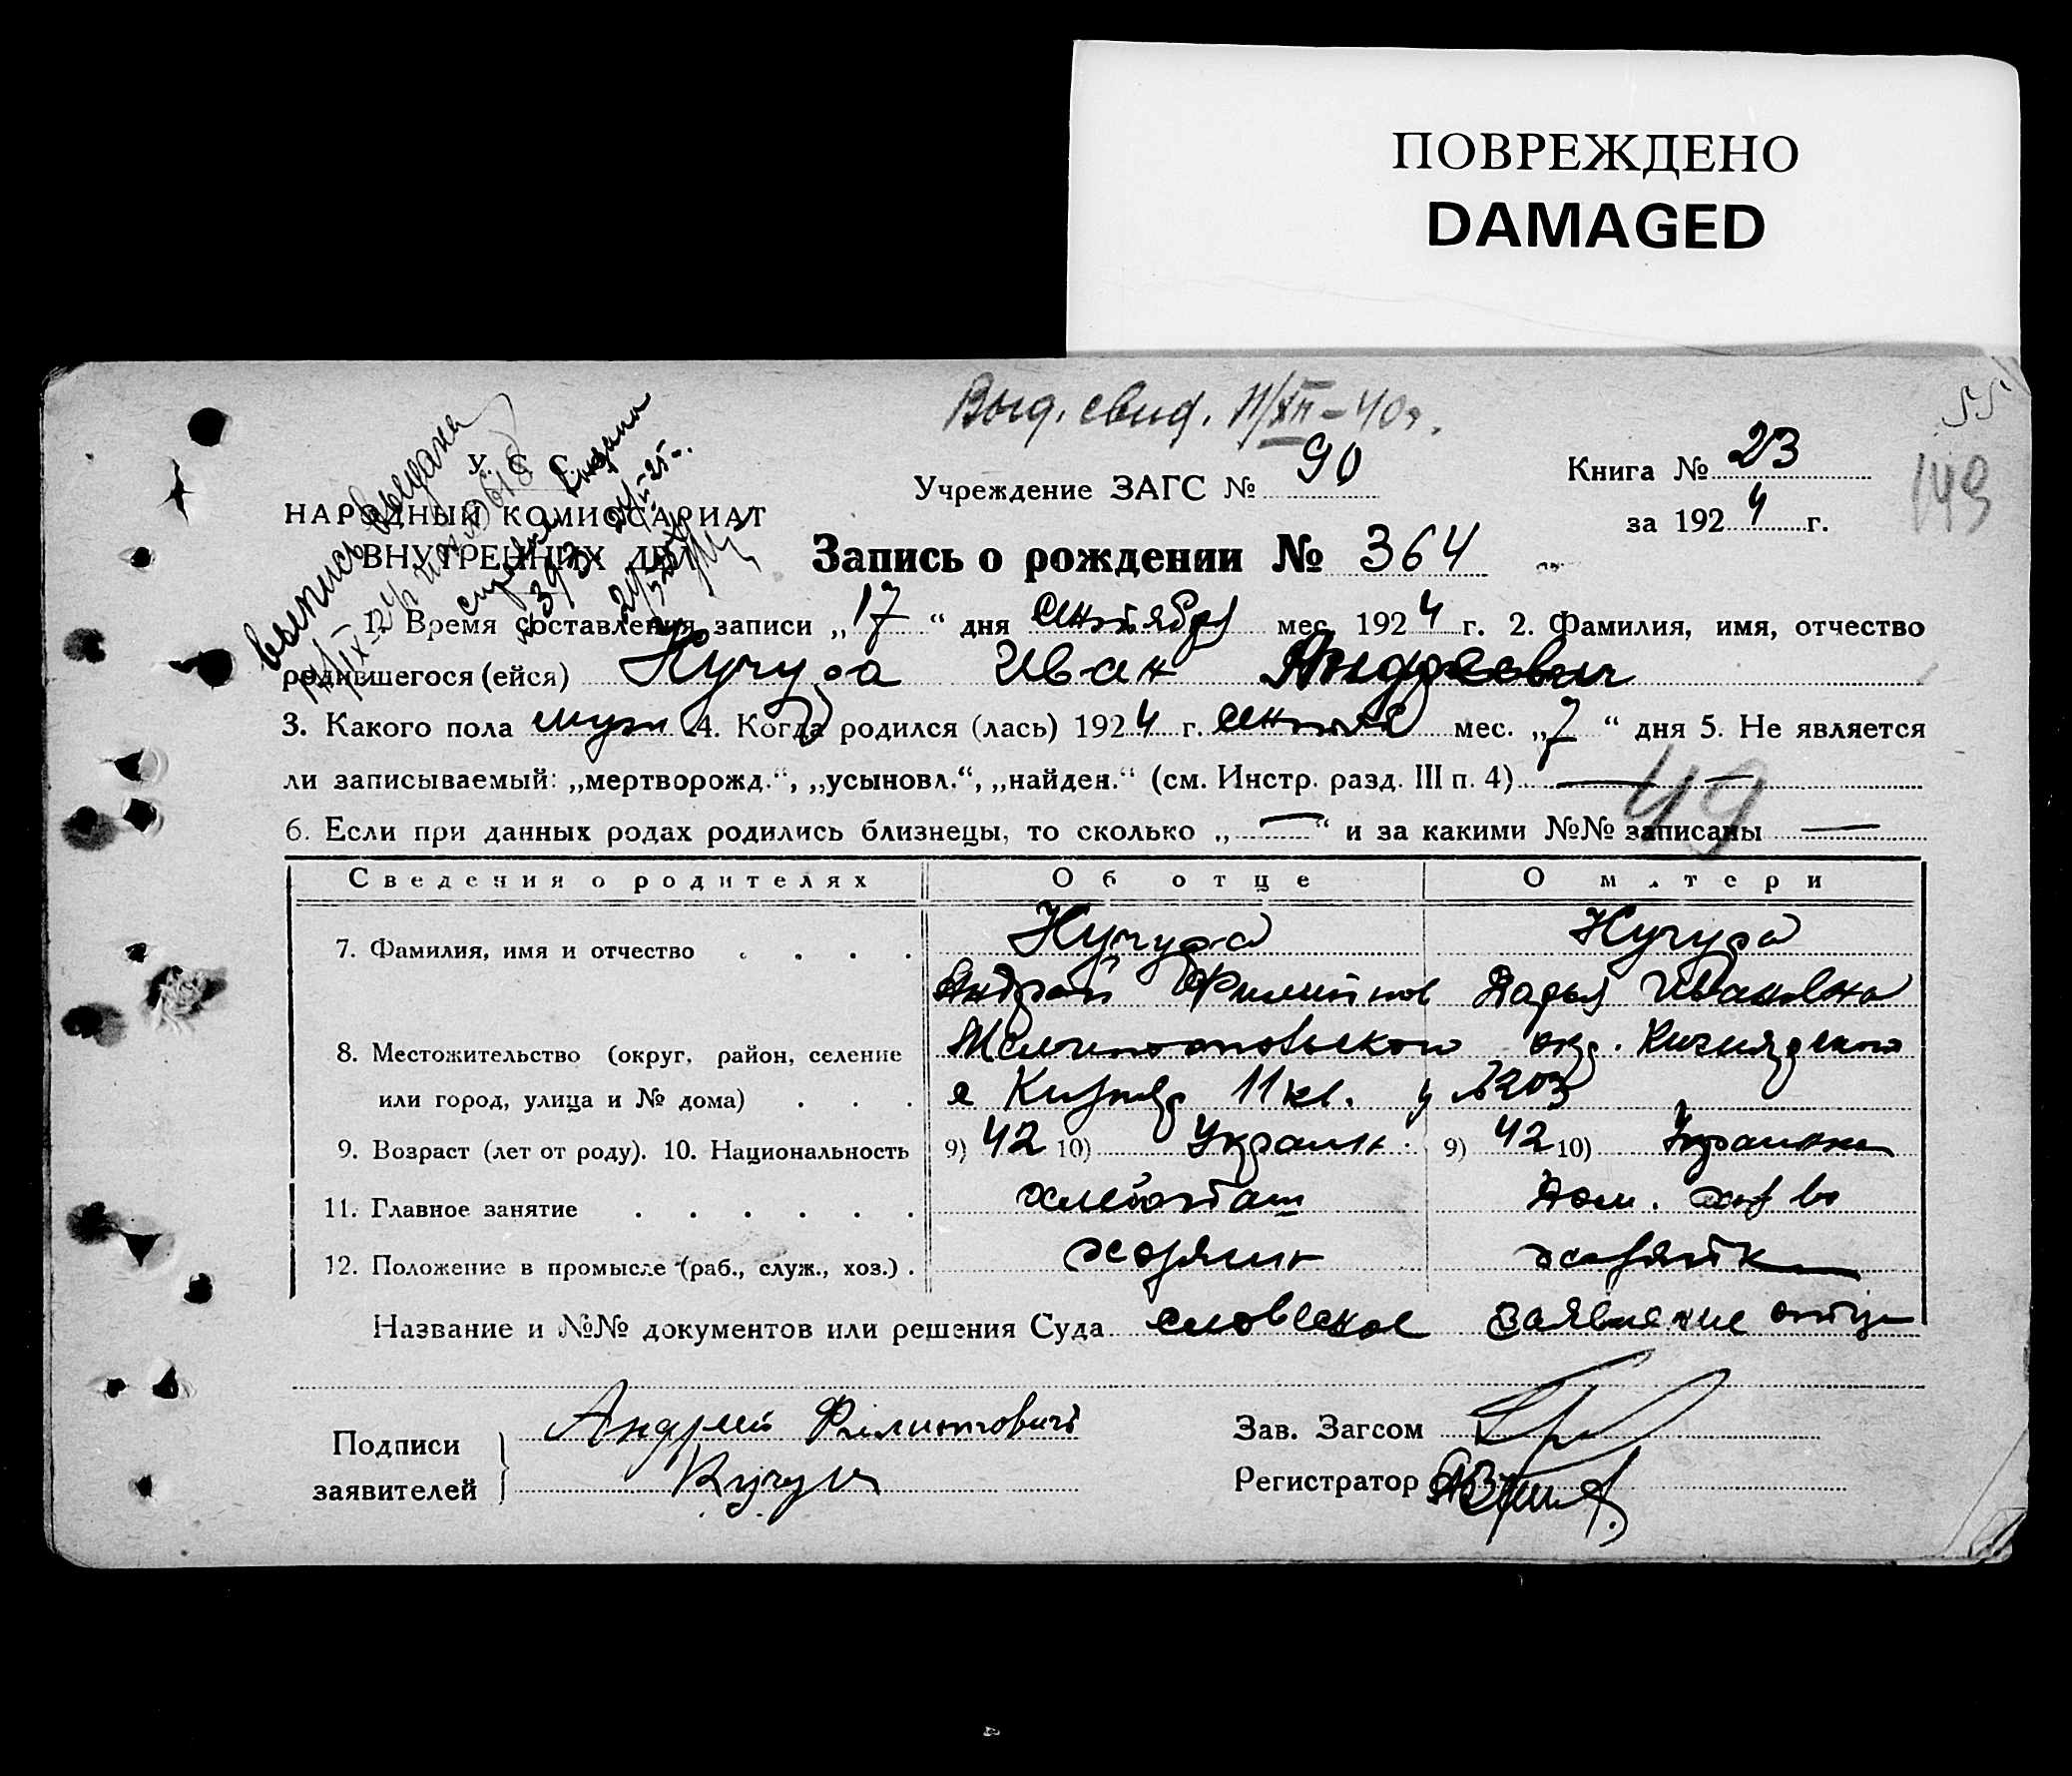 ПОВРЕЖДЕНО
DAMAGED
Выд. свид. 11/XII-40г.
У. С. С. Р.
НАРОДНЫЙ КОМИССАРИАТ
ВНУТРЕННИХ ДЕЛ
выпись выдана
Учреждение ЗАГС № 90
Книга № 23
за 1924 г.
149
Запись о рождении № 364
1. Время составления записи „17“ дня сентября мес. 1924 г. 2. Фамилия, имя, отчество
родившегося (ейся) Кучура Иван Андреевич
3. Какого пола муж 4. Когда родился (лась) 1924 г. сентября мес. „7“ дня 5. Не является
ли записываемый: „мертворожд.“, „усыновл.“, „найден.“ (см. Инстр. разд. III п. 4) —
49
6. Если при данных родах родились близнецы, то сколько „—“ и за какими №№ записаны —
Сведения о родителях Об отце О матери
7. Фамилия, имя и отчество Кучура Кучура
Андрей Филиппов Дарья Ивановна
8. Местожительство (округ, район, селение окр.
или город, улица и № дома) 11 кв. №203
9. Возраст (лет от роду). 10. Национальность 9) 42 10) Украин. 9) 42 10) Украинка
11. Главное занятие хлебопаш Дом. хоз во
12. Положение в промысле (раб., служ., хоз.) хозяин хозяйка
Название и №№ документов или решения Суда словесное заявление отца
Подписи заявителей Андрей Филиппович
Кучура
Зав. Загсом
Регистратор